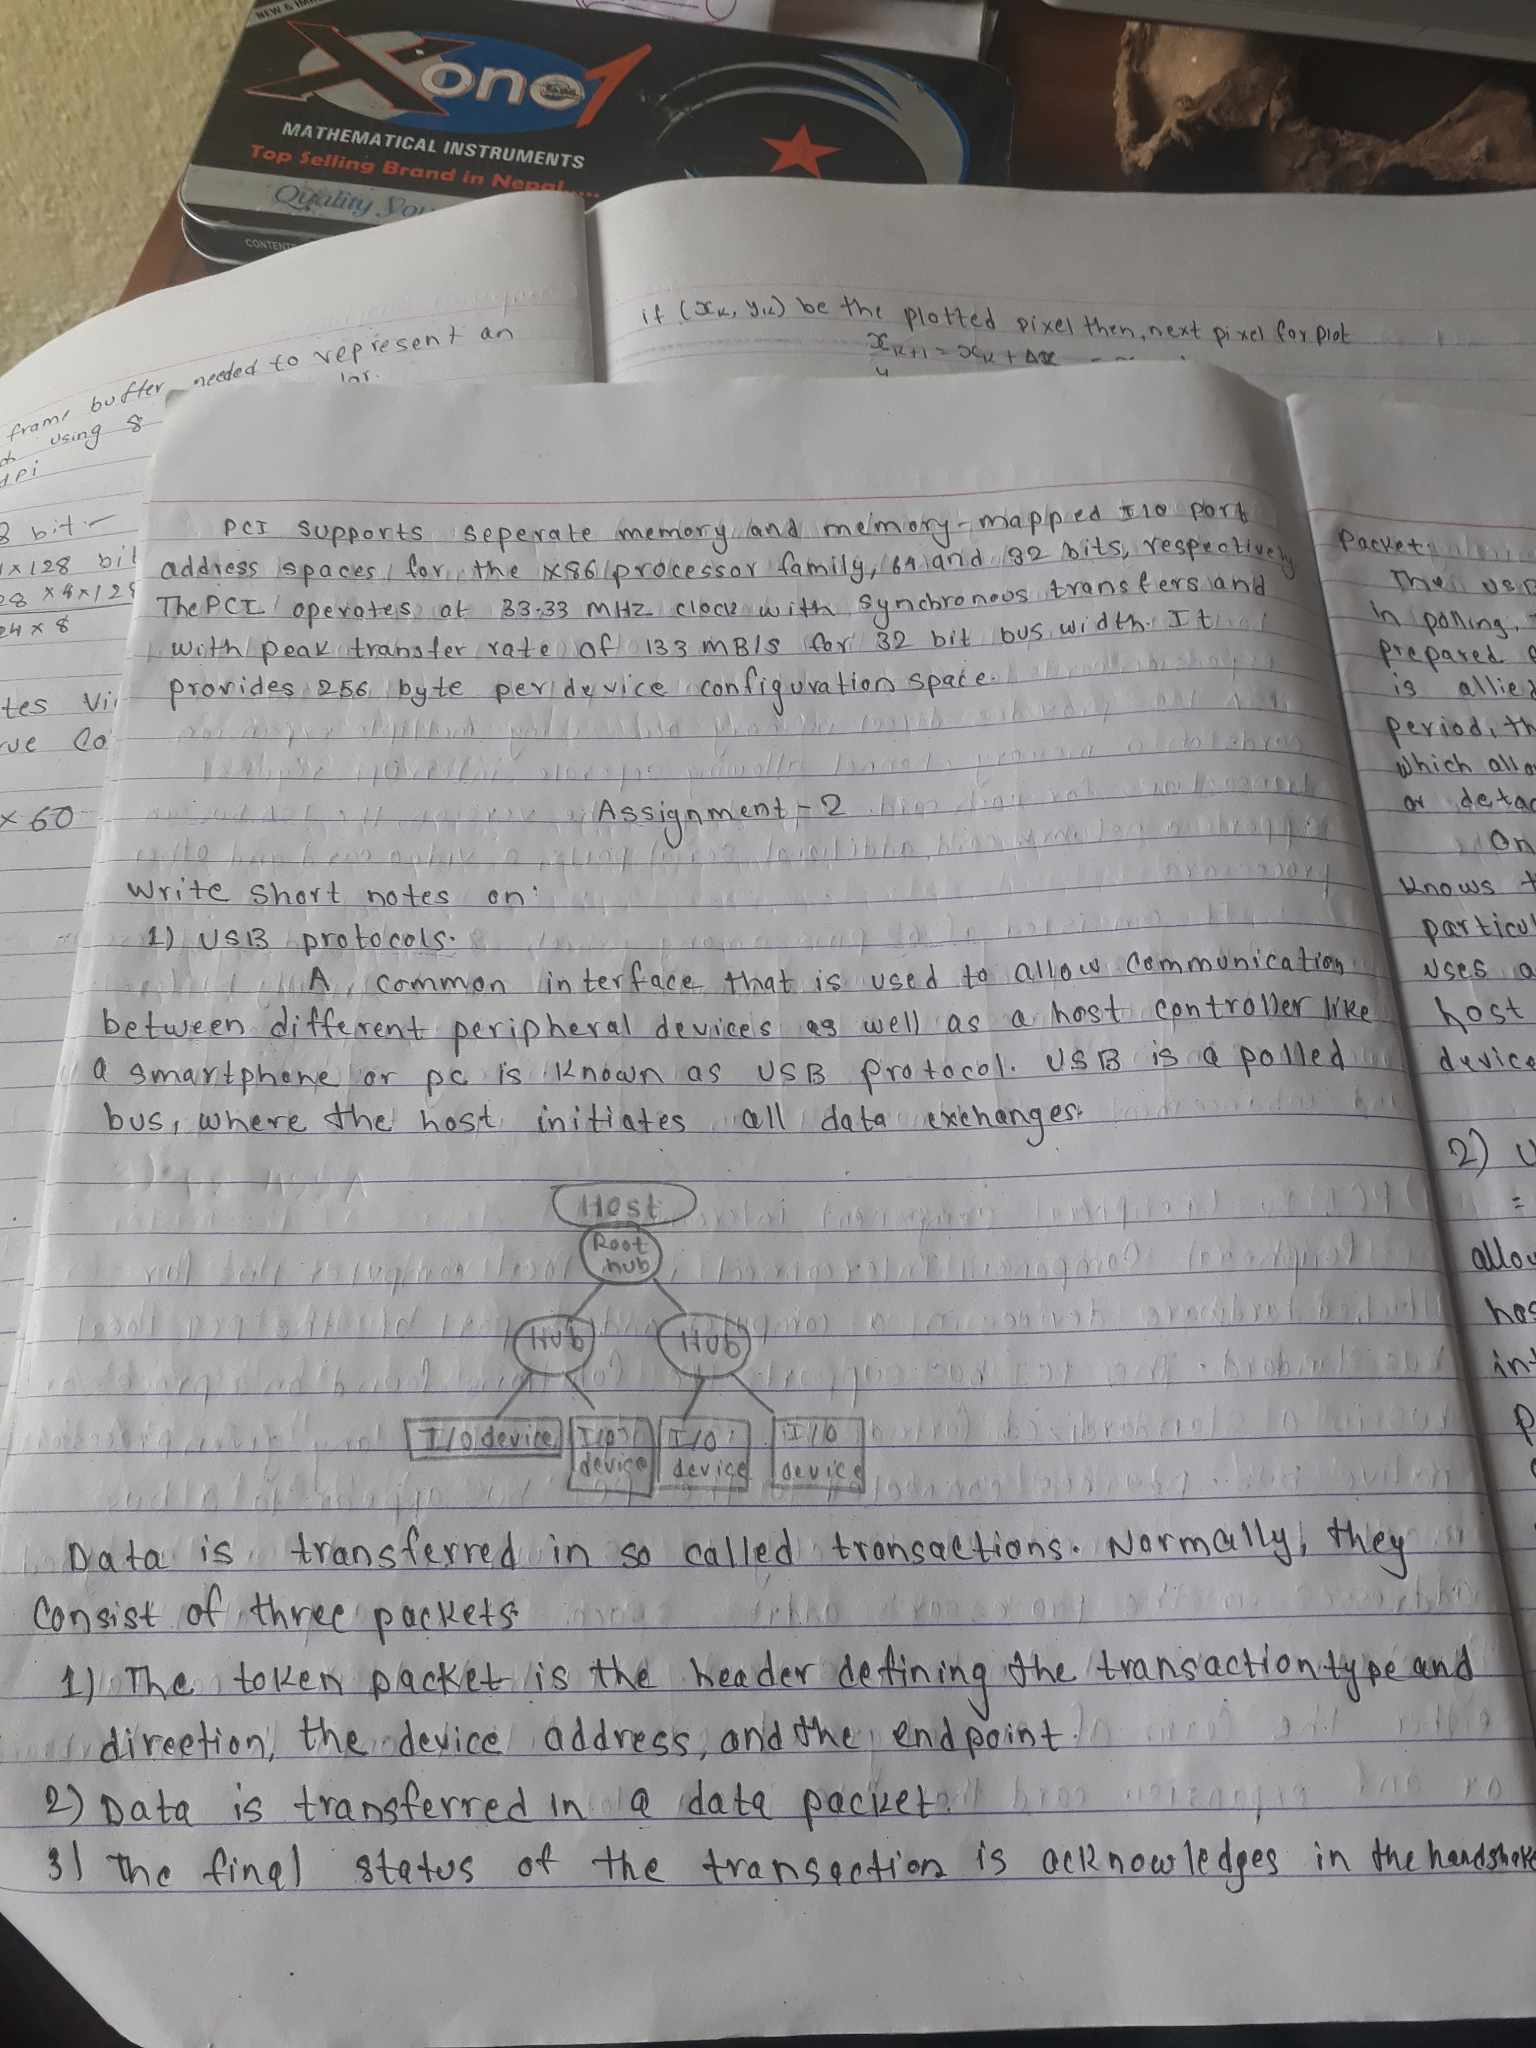 NEW & IM
Xone1
MATHEMATICAL INSTRUMENTS
Top Selling Brand in Nepal.....
Quality You
CONTENT
frame buffer needed to represent an
using 8
dpi
8 bit
1x128 bit
28 x 8 x 128
24 x 8
tes Vi
rue Co
x 60
if (xk, yk) be the plotted pixel then, next pixel for plot
xk+1 = xk + Δx
PCI supports seperate memory and memory-mapped I10 port
address spaces for the x86 processor family, 64 and 32 bits, respectively
The PCI operates at 33.33 MHZ clock with synchronous transfers and
with peak transfer rate of 133 MB/s for 32 bit bus width. It
provides 256 byte per device configuration space.
Assignment - 2
Write short notes on:
1) USB protocols.
A common interface that is used to allow communication
between different peripheral devices as well as a host controller like
a smartphone or pc is known as USB protocol. USB is a polled
bus, where the host initiates all data exchanges.
Host
Root
hub
Hub Hub
I/O device I/O I/O I/O
device device device
Data is transferred in so called transactions. Normally, they
consist of three packets
1) The token packet is the header defining the transaction type and
direction, the device address, and the endpoint.
2) Data is transferred in a data packet.
3) The final status of the transaction is acknowledges in the handshake
Packet
The USB
In polling,
prepared
is allied
period, th
which allo
or detac
On
knows t
particul
uses a
host
device
2) U
=
allow
hos
int
p